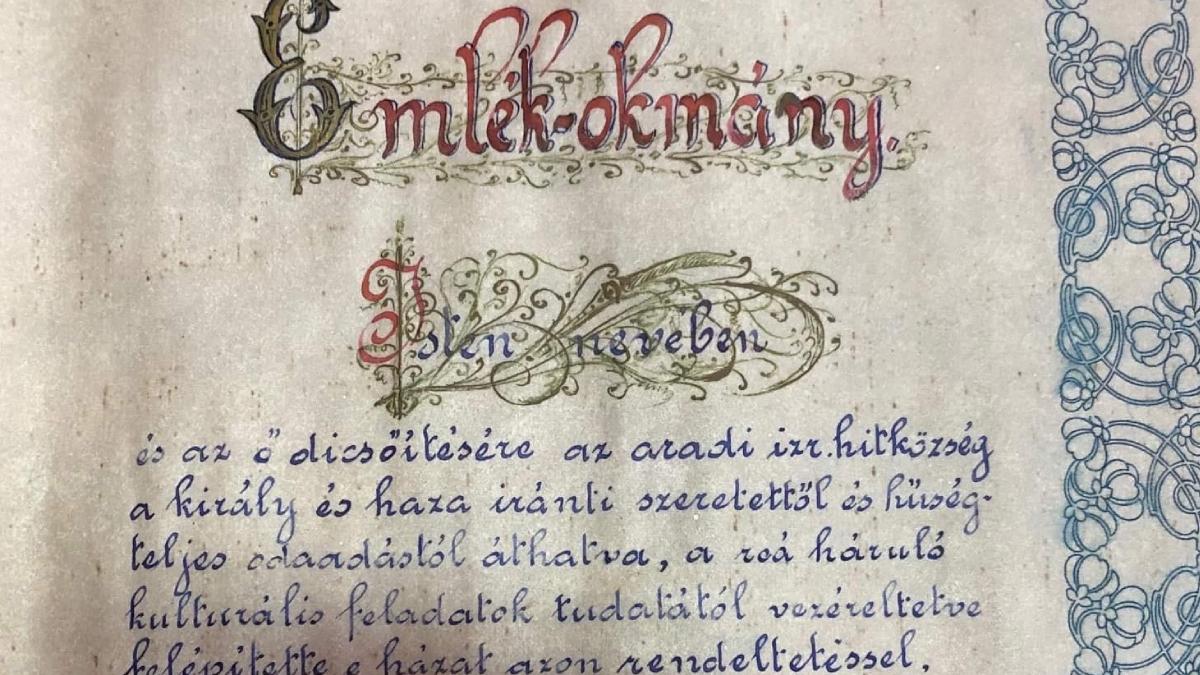 Emlék-okmány.
Isten nevében
és az ő dicsőitésére az aradi izr. hitközség
a király és haza iránti szeretettől és hüség-
teljes odaadástól áthatva, a reá háruló
kulturális feladatok tudatától vezéreltetve
felépitette e házát azon rendeltetéssel,